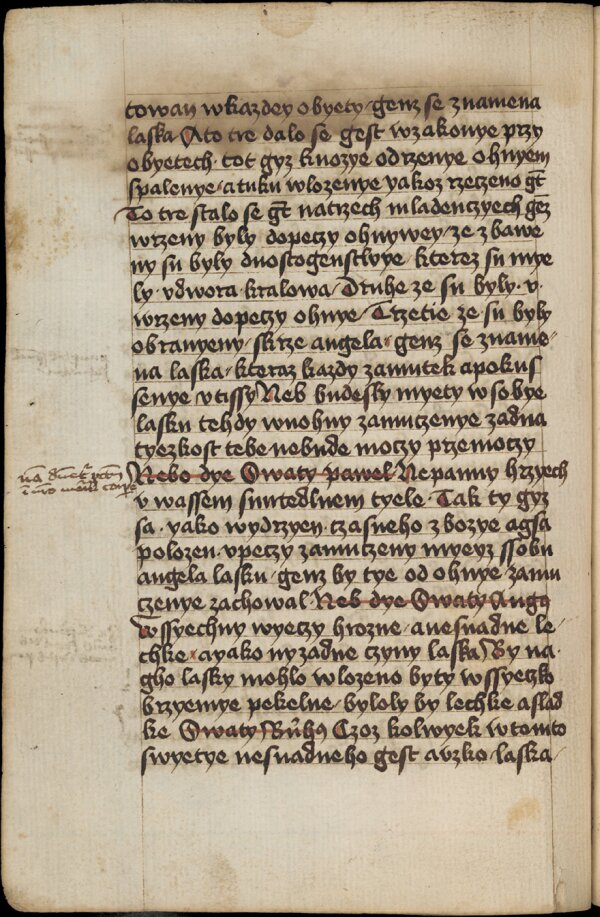 towan wkazdey obyety genz se znamena
laska Ato tre dalo se gest wzakonye przy
obyetech tot gyz knozye odrzenye ohnyem
spalenye a tuku wlozenye yakoz rzeczeno gt
To tre stalo se gt natrzech mladenczyech gez
wrzeny byly dopeczy ohnywey ze zbawe
ny su byly duostogenstwye kterez su mye
ly v dwora kralowa Druhe ze su byly v
wrzeny dopeczy ohnye Trzetie ze su byly
obranyeny skrze angela genz se zname
na laska kteraz kazdy zamutek apokus
senye vtissy Neb budesly myety wsobye
lasku tehdy wnohny zamuczenye zadna
tyezkost tebe nebude moczy przemoczy
Nebo dye Swaty pawel Nepanuy hrzyech
v wassem smrtedlnem tyele Tak ty gyz
sa yako wydrzyen czasneho zbozye agsa
polozen vpeczy zamuczeny myeyz ssobu
angela lasku genz by tye od ohnye zamu
czenye zachowal Neb dye Swaty Augq
Wssyechny wyeczy hrozne anesnadne le
chke ayako nyzadne czyny laska By na
gho lasky mohlo wlozeno byty wssyeczko
brzyemye pekelne byloly by lechke aslad
ke Swaty Buhq Czoz kolwyek wtomto
swyetye nesnadneho gest auzko laska